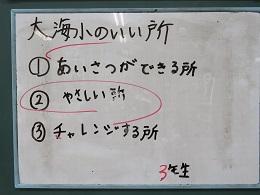 大海小のいい所
① あいさつができる所
② やさしい所
③ チャレンジする所
3年生